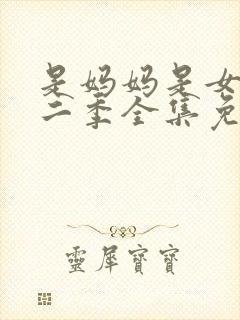 是妈妈是女
二季全集免
靈犀寶寶